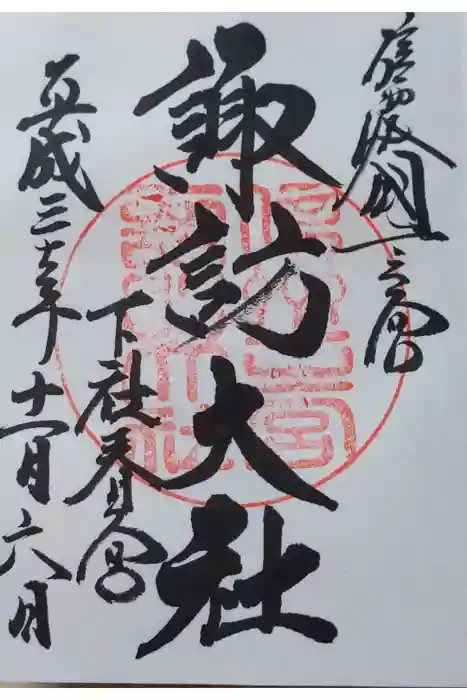 信濃國一之宮
諏訪大社
下社春宮
平成三十年十一月六日